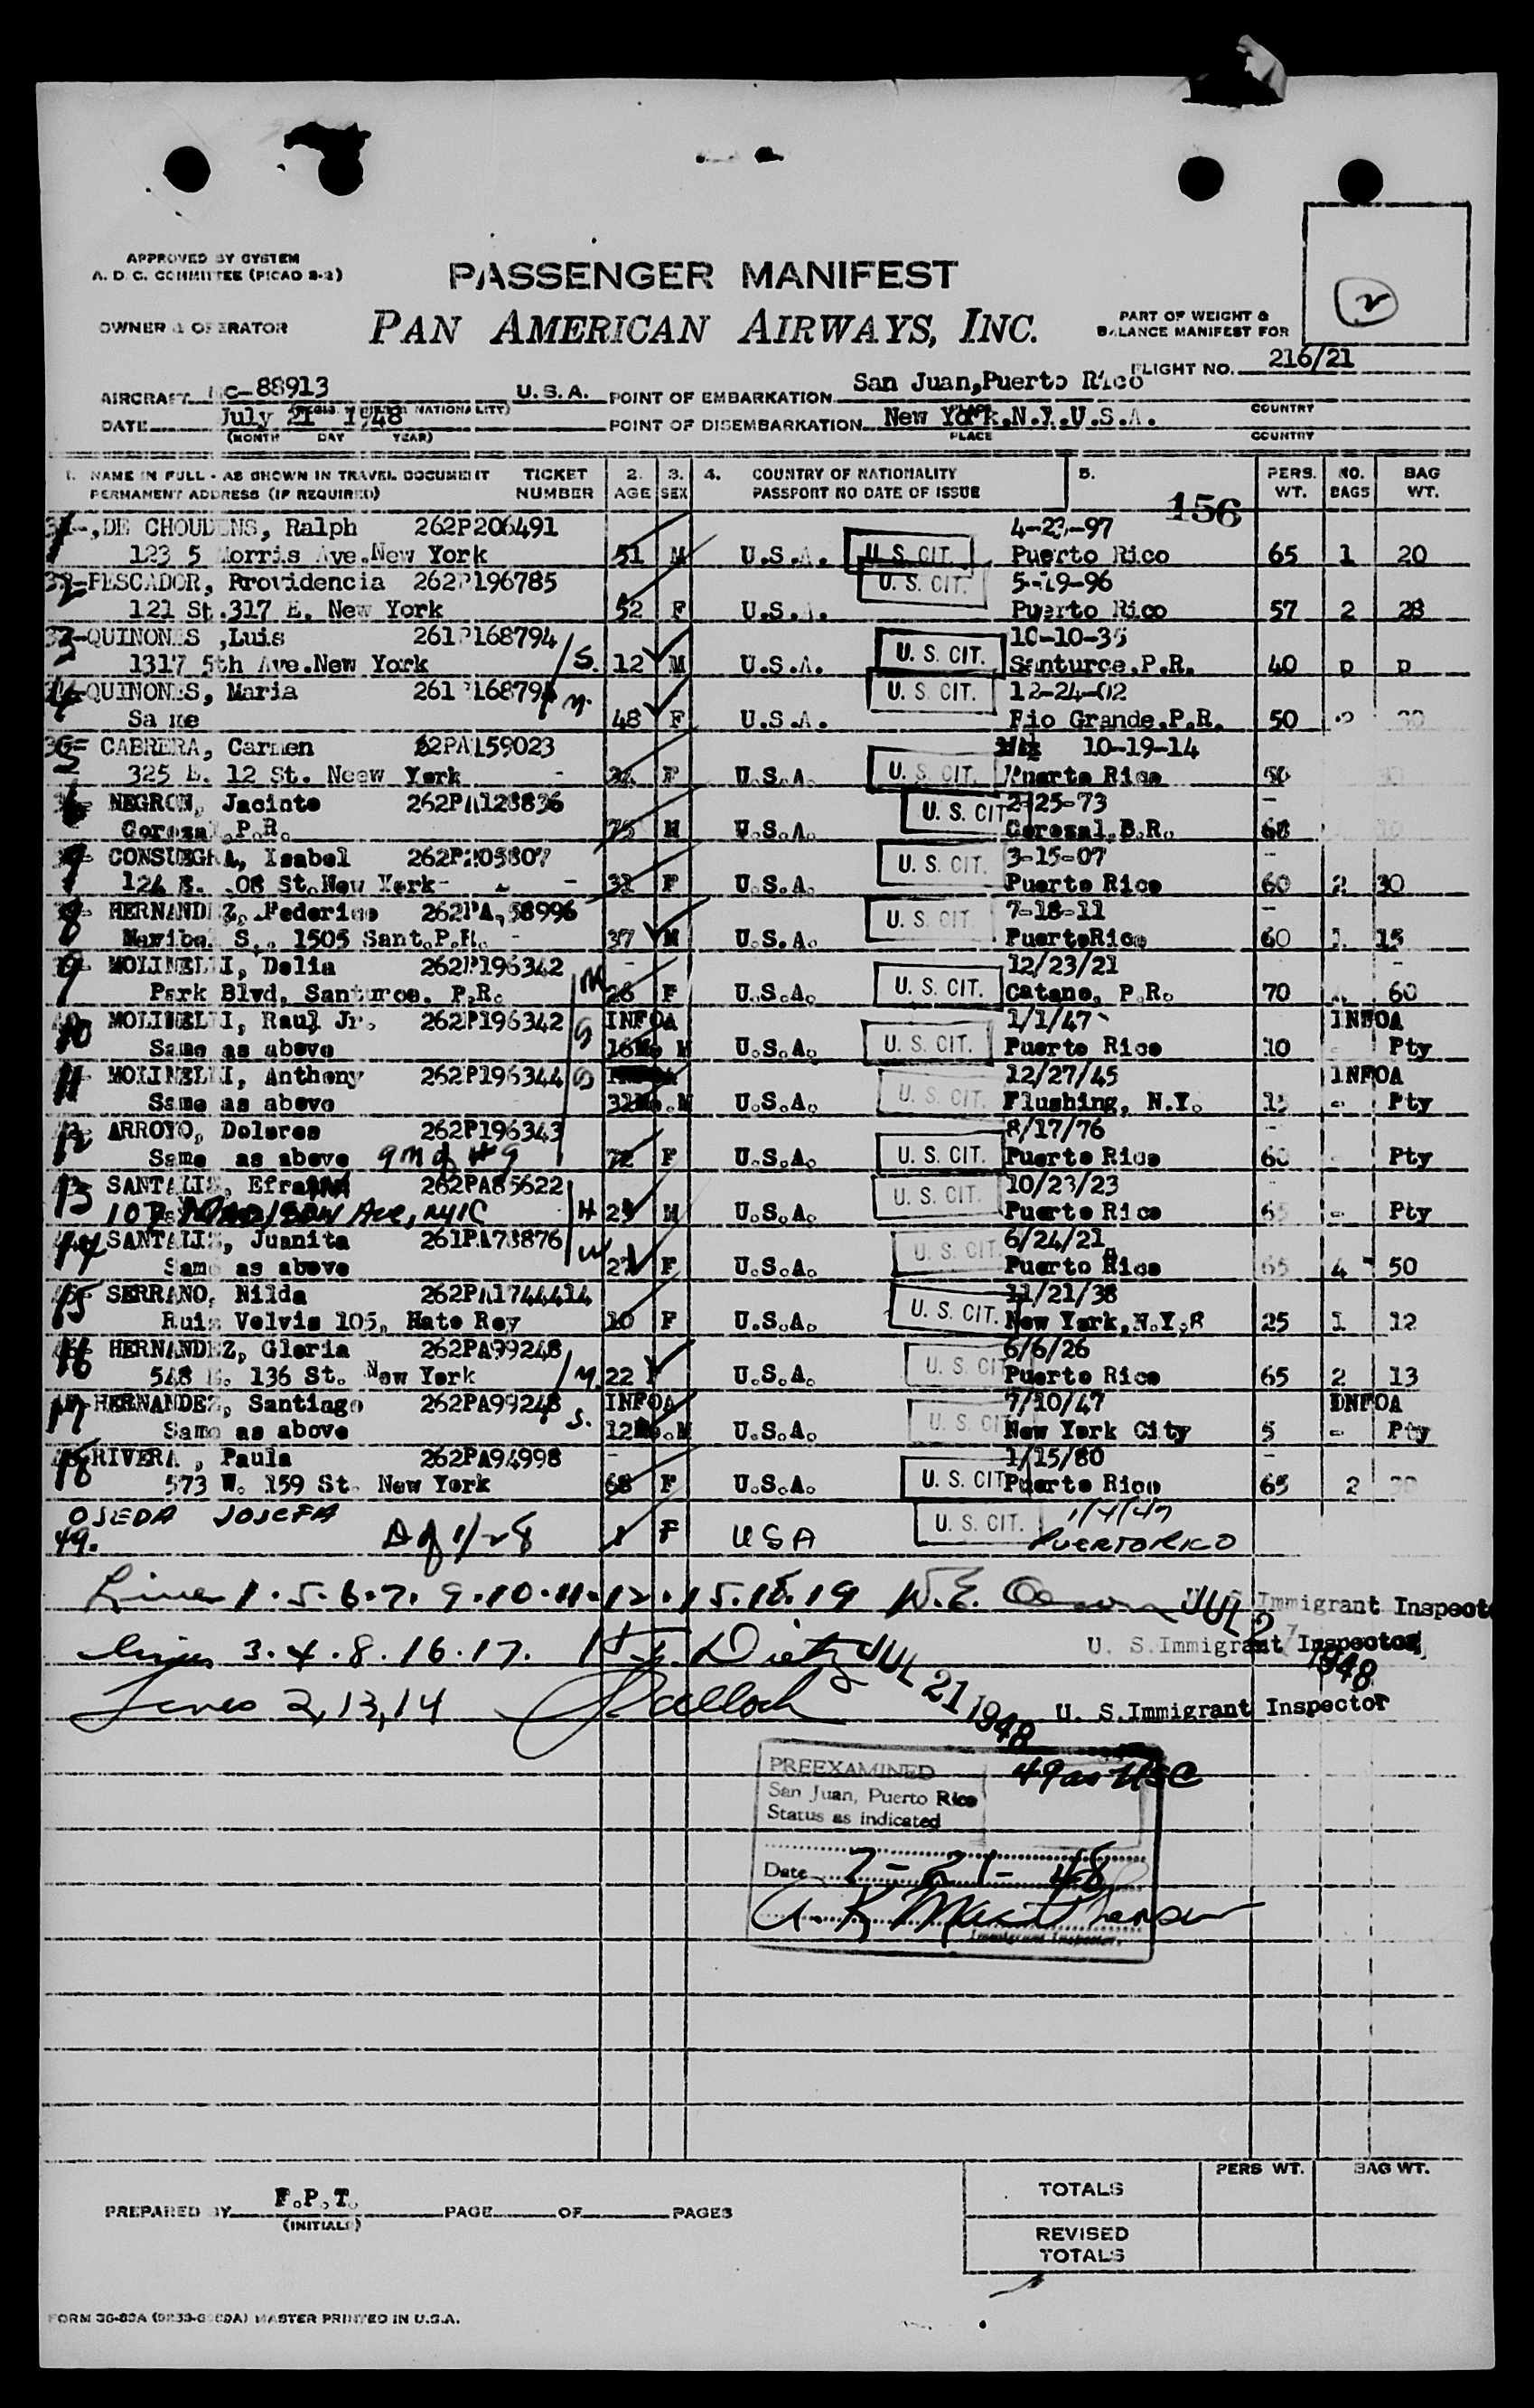 APPROVED BY SYSTEM
A. D. C. COMMITTEE (PICAO 8-2)
PASSENGER MANIFEST
OWNER & OPERATOR
PAN AMERICAN AIRWAYS, INC.
PART OF WEIGHT &
BALANCE MANIFEST FOR
2
FLIGHT NO. 216/21
AIRCRAFT NC-88913 U.S.A. POINT OF EMBARKATION San Juan, Puerto Rico
DATE July 21 1948 POINT OF DISEMBARKATION New York.N.Y.U.S.A. COUNTRY
(MONTH DAY YEAR) PLACE COUNTRY
1. NAME IN FULL - AS SHOWN IN TRAVEL DOCUMENT TICKET 2. 3. 4. COUNTRY OF NATIONALITY 5. PERS. NO. BAG
PERMANENT ADDRESS (IF REQUIRED) NUMBER AGE SEX PASSPORT NO DATE OF ISSUE WT. BAGS WT.
156
DE CHOUDENS, Ralph 262P206491 4-23-97
123 5 Morris Ave.New York 51 M U.S.A. U.S. CIT. Puerto Rico 65 1 20
PESCADOR, Providencia 262P196785 U.S. CIT. 5-19-96
121 St.317 E. New York 52 F U.S.A. Puerto Rico 57 2 28
33-QUINONES ,Luis 261P168794 10-10-35
1317 5th Ave.New York S. 12 M U.S.A. U.S. CIT. Santurce.P.R. 40 p p
QUINONES, Maria 261P168794 M. U.S. CIT. 12-24-02
Same 48 F U.S.A. Rio Grande.P.R. 50 2 30
CABRERA, Carmen 62PA159023 10-19-14
325 E. 12 St. Neew York F U.S.A. U.S. CIT. Puerto Rico
6 NEGRON, Jacinto 262PA128836 2-25-73
Corozal.P.R. 75 M U.S.A. U.S. CIT Corozal.P.R. 68
7 CONSUEGRA, Isabel 262P205807 U.S. CIT. 3-15-07
124 E. 108 St.New York F U.S.A. Puerto Rico 60 2 30
8 HERNANDEZ, Federico U.S. CIT. 7-18-11
1505 Sant.P.R. 37 M U.S.A. PuertoRico 60 1 15
9 MOLINELLI, Delia 262P196342 M 12/23/21
Park Blvd, Santurce. P.R. 26 F U.S.A. U.S. CIT. Catano, P.R. 70 60
10 MOLINELLI, Raul Jr. 262P196342 S INFOA 1/1/47 INFOA
Same as above 16Mo M U.S.A. U.S. CIT. Puerto Rico 10 - Pty
11 MOLINELLI, Anthony 262P196344 S 12/27/45 INFOA
Same as above 32Mo.M U.S.A. U.S. CIT. Flushing, N.Y. - Pty
12 ARROYO, Dolores 262P196343 8/17/76
Same as above gm of #9 72 F U.S.A. U.S. CIT. Puerto Rico 60 - Pty
13 SANTALIS, Efrain 262PA85622 10/23/23
Madison Ave, NYC H M U.S.A. U.S. CIT. Puerto Rico 65 - Pty
44 SANTALIS, Juanita 261PA78876 W 6/24/21
Same as above 27 F U.S.A. U.S. CIT. Puerto Rico 65 4 50
15 SERRANO, Nilda 262PA1744414 11/21/38
Ruis Velvis 105, Hato Rey 10 F U.S.A. U.S. CIT. New York,N.Y. 25 1 12
16 HERNANDEZ, Gloria 262PA99248 6/6/26
548 E. 136 St. New York M. 22 U.S.A. U.S. CIT Puerto Rico 65 2 13
17 HERNANDEZ, Santiago 262PA99248 S. INFOA 7/10/47 INFOA
Same as above 12Mo.M U.S.A. U.S. CIT New York City 5 - Pty
18 RIVERA , Paula 262PA94998 1/15/80
573 W. 159 St. New York 68 F U.S.A. U.S. CIT Puerto Rico 65 2
OJEDA JOSEFA U.S. CIT. 1/4/47
49. D of 1/28 1 F USA PUERTO RICO
Lines 1.5.6.7.9.10.11.12.15.18.19 W.E. JUL 2 1948 Immigrant Inspector
Lines 3.4.8.16.17. Dietz JUL 21 1948 U. S.Immigrant Inspector
Lines 2,13,14 U. S.Immigrant Inspector
PREEXAMINED 49 as USC
San Juan, Puerto Rico
Status as indicated
Date 7-21-48
Immigrant Inspector
PREPARED BY F.P.T. PAGE OF PAGES
(INITIALS)
PERS WT. BAG WT.
TOTALS
REVISED
TOTALS
MASTER PRINTED IN U.S.A.